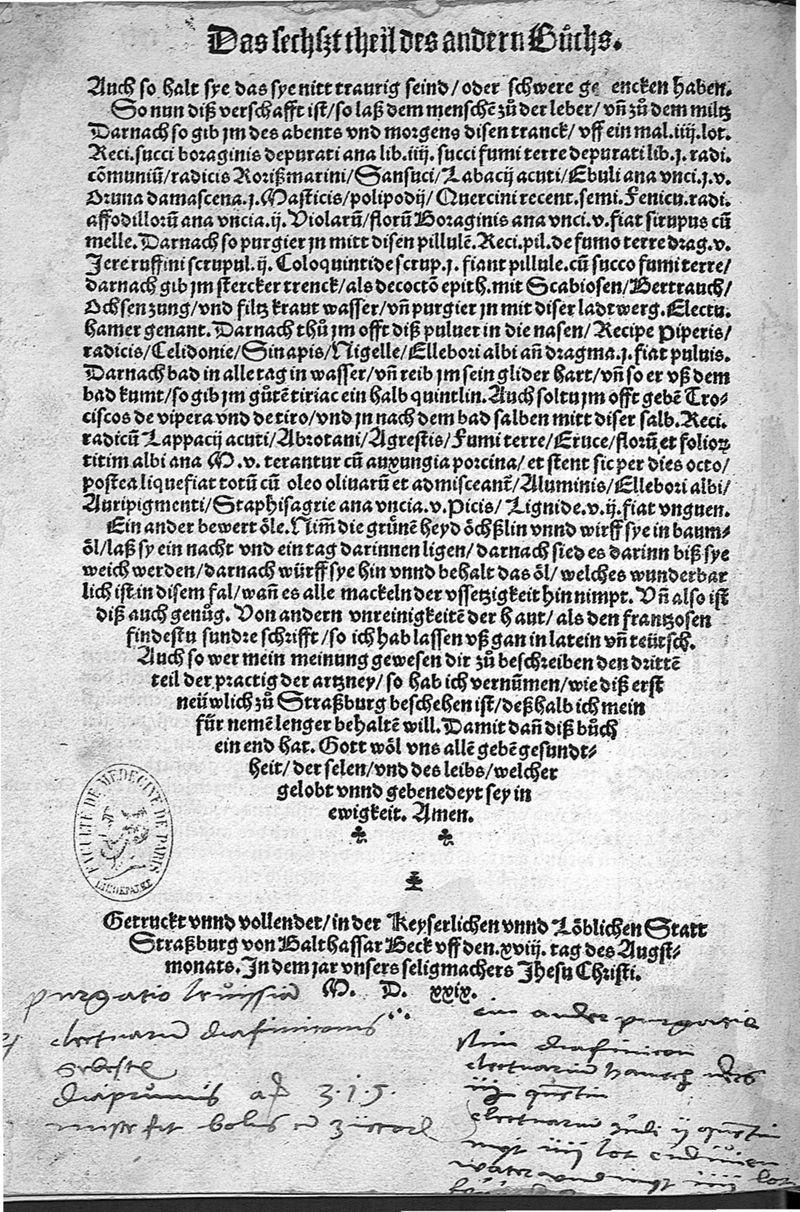 Das sechszt theil des andern Bůchs.
Auch so halt sye das sye nitt traurig seind/ oder schwere ge encken haben.
So nun diß verschafft ist/ so laß dem menschē zů der leber/ vn̄ zů dem miltz
Darnach so gib jm des abents vnd morgens disen tranck/ vff ein mal. iiij. lot.
Reci. succi boraginis depurati ana lib. iiij. succi fumi terre depurati lib. j. radi.
cōmuniū/ radicis Rorißmarini/ Sansuci/ Labacij acuti/ Ebuli ana vnci. j. v.
Pruna damascena. j. Masticis/ polipodij/ Quercini recent. semi. Fenicu. radi.
affodillorū ana vncia. ij. Violarū/ florū Boraginis ana vnci. v. fiat sirupus cū
melle. Darnach so purgier jn mitt disen pillulē. Reci. pil. de fumo terre drag. v.
Jere ruffini scrupul. ij. Coloquintide scrup. j. fiant pillule. cū succo fumi terre/
darnach gib jm stercker trenck/ als decoctō epith. mit Scabiosen/ Bertrauch/
Ochsen zung/ vnd filtz kraut wasser/ vn̄ purgier jn mit diser ladtwerg. Electu.
hamer genant. Darnach thů jm offt diß puluer in die nasen/ Recipe Piperis/
radicis/ Celidonie/ Sinapis/ Nigelle/ Ellebori albi an̄ dragma. j. fiat puluis.
Darnach bad in alle tag in wasser/ vn̄ reib jm sein glider hart/ vn̄ so er vß dem
bad kumt/ so gib jm gůtē tiriac ein halb quintlin. Auch soltu jm offt gebē Tro-
ciscos de vipera vnd de tiro/ vnd jn nach dem bad salben mitt diser salb. Reci.
radicū Lappacij acuti/ Abrotani/ Agrestis/ Fumi terre/ Eruce/ florū et folioꝝ
titim albi ana M. v. terantur cū auxungia porcina/ et stent sic per dies octo/
postea liquefiat totū cū oleo oliuarū et admisceantᷣ/ Aluminis/ Ellebori albi/
Auripigmenti/ Staphisagrie ana vncia. v. Picis/ Lignide. v. ij. fiat vnguen.
Ein ander bewert ȯle. Nim̄ die grůnē heyd ȯchßlin vnnd wirff sye in baum-
ȯl/ laß sy ein nacht vnd ein tag darinnen ligen/ darnach sied es darinn biß sye
weich werden/ darnach würff sye hin vnnd behalt das ȯl/ welches wunderbar
lich ist in disem fal/ wan̄ es alle mackeln der vssetzigkeit hin nimpt. Vn̄ also ist
diß auch genůg. Von andern vnreinigkeitē der haut/ als den frantzosen
findestu sundre schrifft/ so ich hab lassen vß gan in latein vn̄ teütsch.
Auch so wer mein meinung gewesen dir zů beschreiben den drittē
teil der practig der artzney/ so hab ich vernūmen/ wie diß erst
neüwlich zů Straßburg beschehen ist/ deßhalb ich mein
für nemē lenger behaltē will. Damit dan̄ diß bůch
ein end hat. Gott wȯl vns allē gebē gesundt-
heit/ der selen/ vnd des leibs/ welcher
gelobt vnnd gebenedeyt sey in
ewigkeit. Amen.
FACULTÉ DE MÉDECINE DE PARIS
Getruckt vnnd vollendet/ in der Keyserlichen vnnd Lȯblichen Statt
Straßburg von Balthassar Beck vff den. xviij. tag des Augst-
monats. In dem jar vnsers seligmachers Jhesu Christi.
M. D. xxix.
purgatio
electuarium
ein ander purgatio
electuarium
electuarium